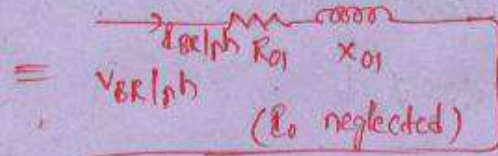 I_BR/ph R_01 X_01
=
V_BR/ph
(I_0 neglected)